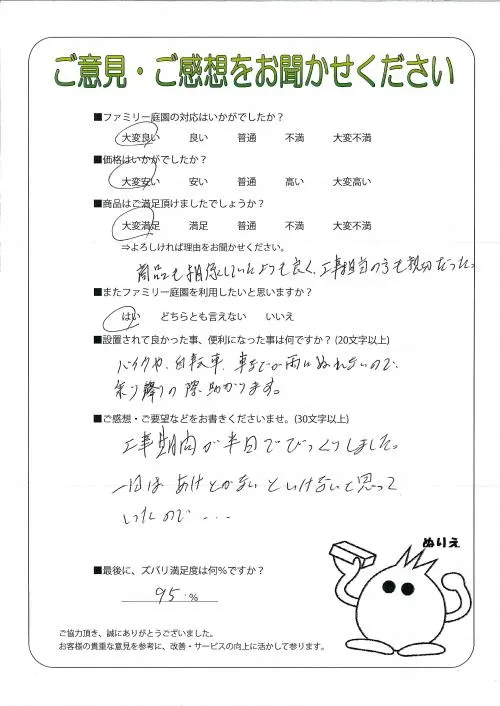 ご意見・ご感想をお聞かせください
■ファミリー庭園の対応はいかがでしたか？
大変良い 良い 普通 不満 大変不満
■価格はいかがでしたか？
大変安い 安い 普通 高い 大変高い
■商品はご満足頂けましたでしょうか？
大変満足 満足 普通 不満 大変不満
⇒よろしければ理由をお聞かせください。
商品も想像していたよりも良く、工事担当の方も親切だった。
■またファミリー庭園を利用したいと思いますか？
はい どちらとも言えない いいえ
■設置されて良かった事、便利になった事は何ですか？(20文字以上)
バイクや、自転車、車などが雨にぬれないので、
乗り降りの際、助かります。
■ご感想・ご要望などをお書きくださいませ。(30文字以上)
工事期間が半日でびっくりしました。
一日はあけとかないといけないと思って
いったので・・・
■最後に、ズバリ満足度は何%ですか？
95.%
ぬりえ
ご協力頂き、誠にありがとうございました。
お客様の貴重な意見を参考に、改善・サービスの向上に活かして参ります。